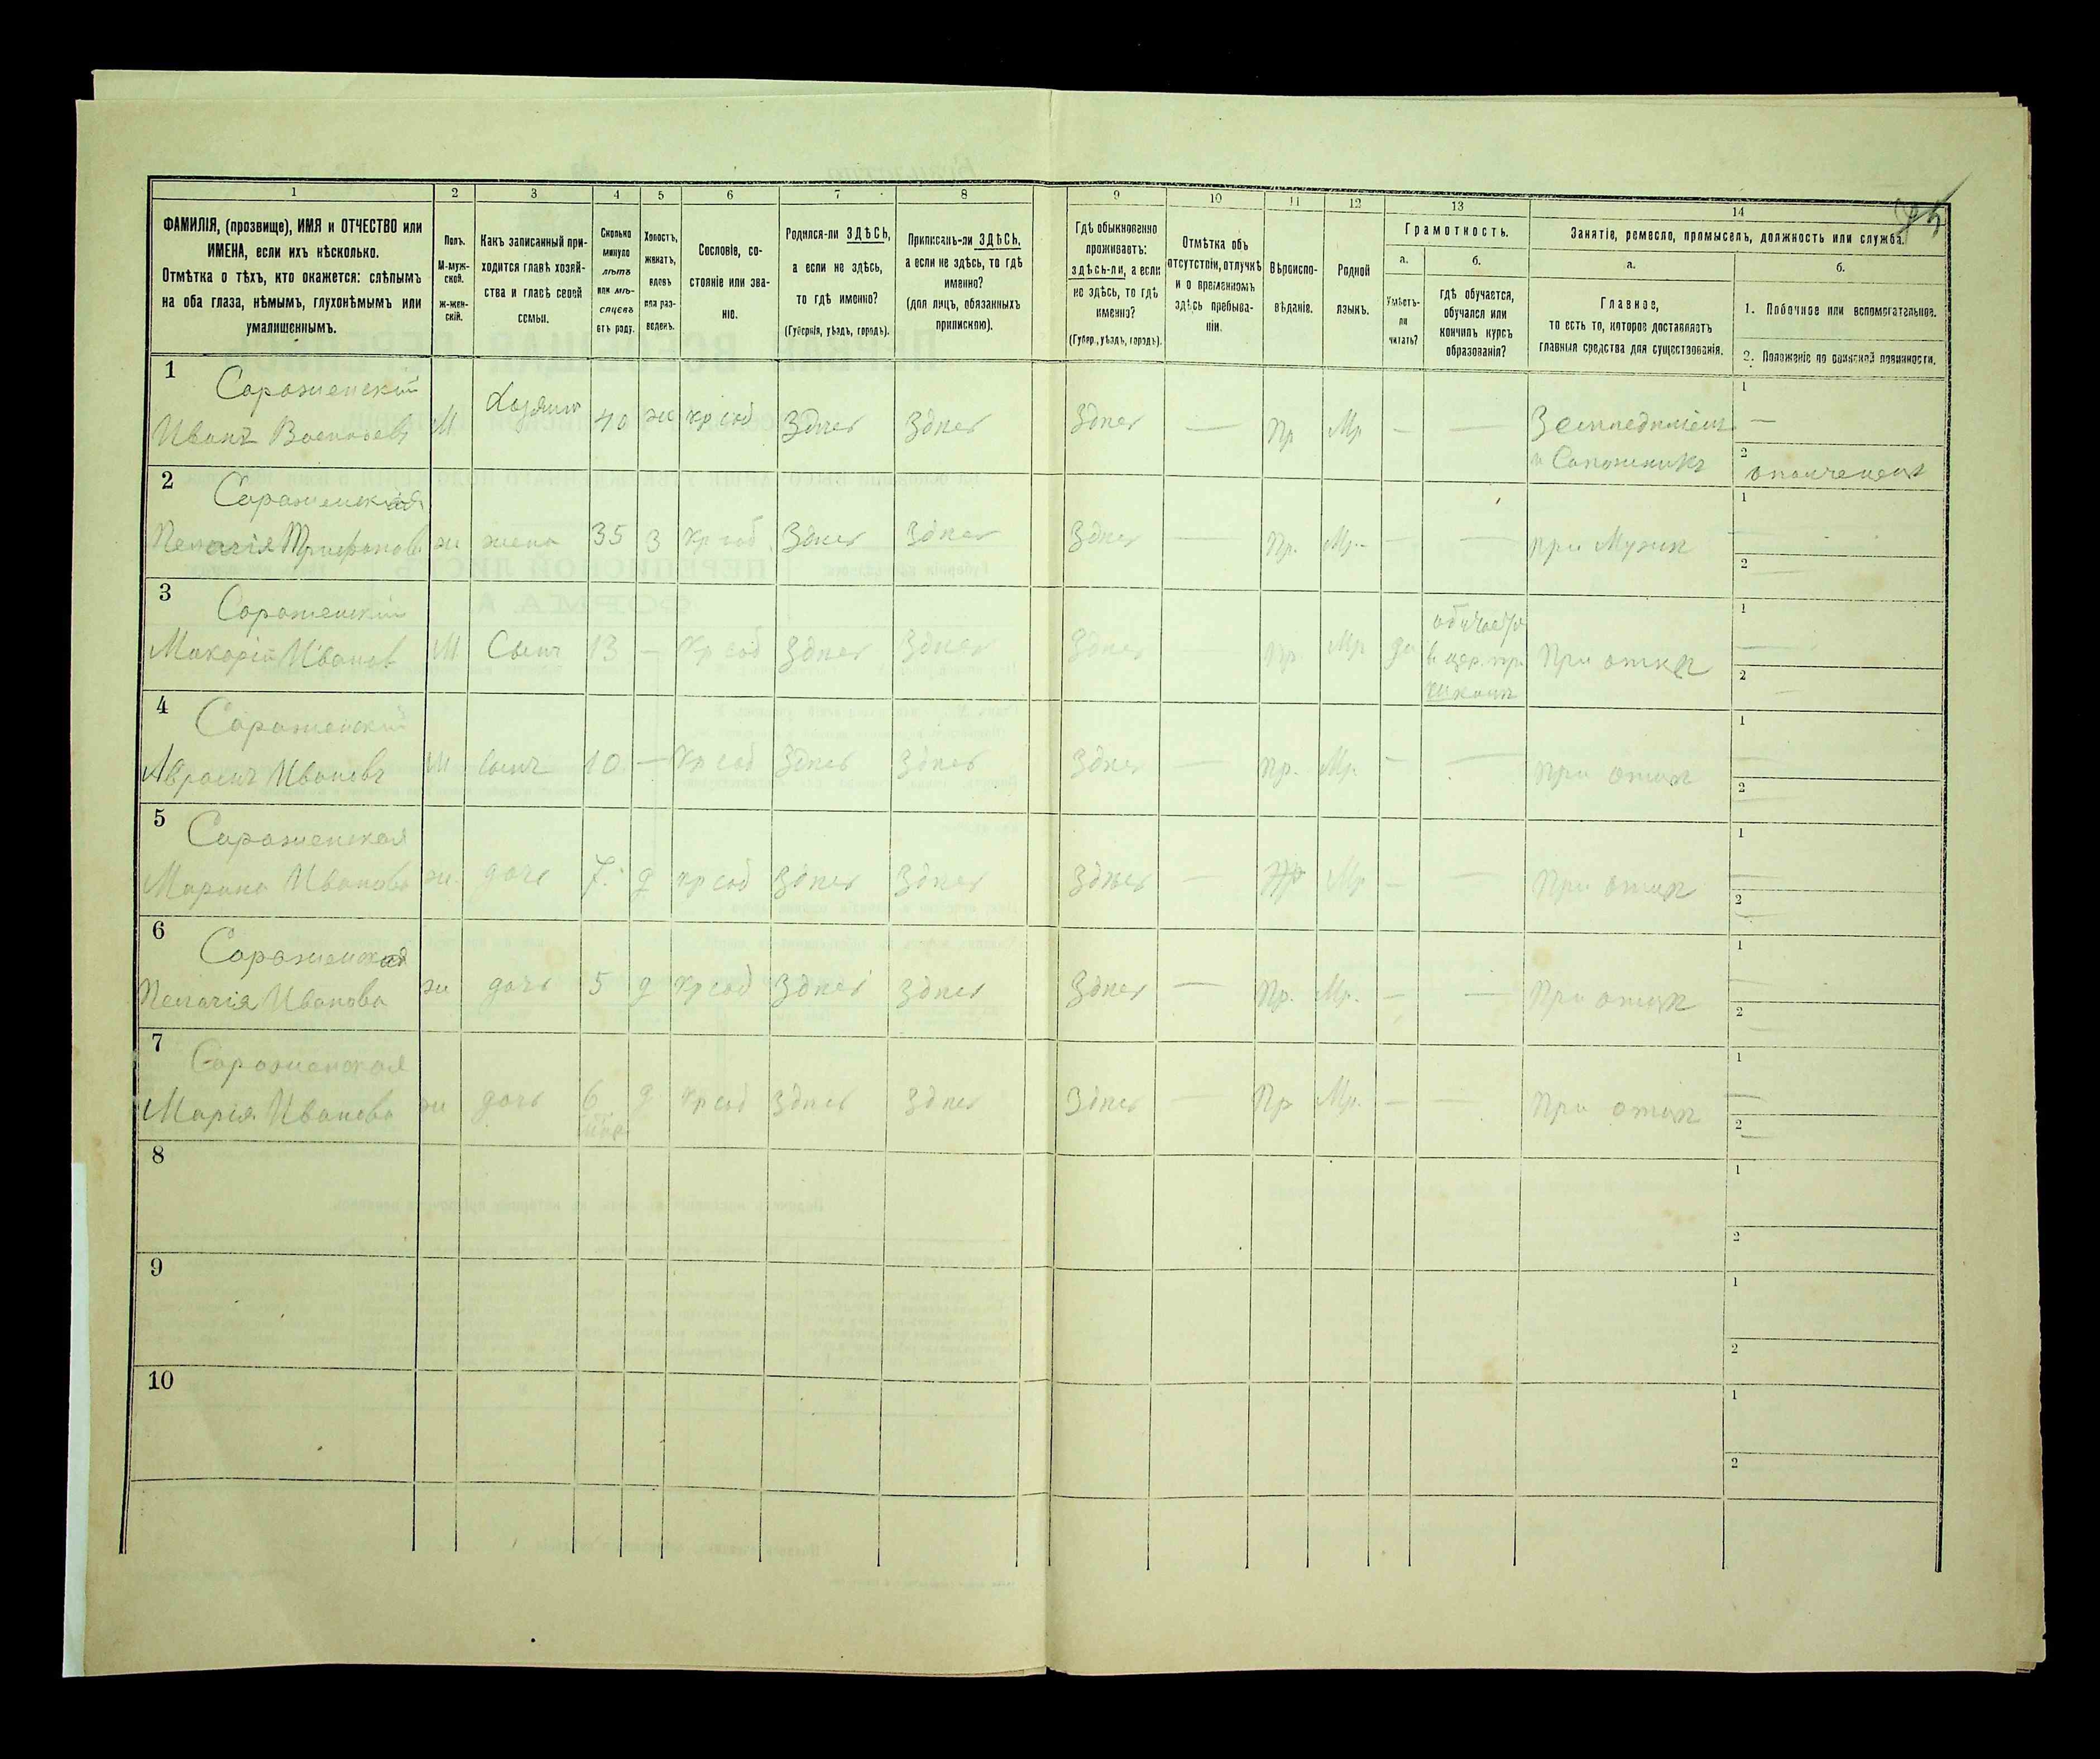 1 2 3 4 5 6 7 8 9 10 11 12 13 14
ФАМИЛІЯ, (прозвище), ИМЯ и ОТЧЕСТВО или
ИМЕНА, если ихъ нѣсколько.
Отмѣтка о тѣхъ, кто окажется: слѣпымъ
на оба глаза, нѣмымъ, глухонѣмымъ или
умалишеннымъ.
Полъ.
М-муж-
ской.
Ж-жен-
скій.
Какъ записанный при-
ходится главѣ хозяй-
ства и главѣ своей
семьи.
Сколько
минуло
лѣтъ
или мѣ-
сяцевъ
отъ роду.
Холостъ,
женатъ,
вдовъ
или раз-
веденъ.
Сословіе, со-
стояніе или зва-
ніе.
Родился-ли ЗДѢСЬ,
а если не здѣсь,
то гдѣ именно?
(Губернія, уѣздъ, городъ).
Приписанъ-ли ЗДѢСЬ,
а если не здѣсь, то гдѣ
именно?
(для лицъ, обязанныхъ
припискою).
Гдѣ обыкновенно
проживаетъ:
здѣсь-ли, а если
не здѣсь, то гдѣ
именно?
(Губер., уѣздъ, городъ).
Отмѣтка объ
отсутствіи, отлучкѣ
и о временномъ
здѣсь пребыва-
ніи.
Вѣроиспо-
вѣданіе.
Родной
языкъ.
Грамотность.
а.
Умѣетъ-
ли
читать?
б.
гдѣ обучается,
обучался или
кончилъ курсъ
образованія?
Занятіе, ремесло, промыселъ, должность или служба.
а.
Главное,
то есть то, которое доставляетъ
главныя средства для существованія.
б.
1. Побочное или вспомогательное.
2. Положеніе по воинской повинности.
1 Сороженскій
Иванъ М Хозяинъ 40 ж кр соб Здѣсь Здѣсь Здѣсь — Пр Мр — — 1 —
и Сапожникъ 2 ополченецъ
2 Сороженская
Пелагія Трифонов ж жена 35 З кр соб Здѣсь Здѣсь Здѣсь — Пр. Мр. — — при Мужѣ 1 2
3 Сороженскій
Макарій Иванов М Сынъ 13 — кр соб Здѣсь Здѣсь Здѣсь Пр. Мр да обучается при отцѣ 1 2
в цер. пр.
школѣ
4 Сороженскій
Ивановъ М Сынъ 10 — кр соб Здѣсь Здѣсь Здѣсь — Пр. Мр. — — при отцѣ 1 2
5 Сороженская
Марина Иванова ж дочь 7. д кр соб Здѣсь Здѣсь Здѣсь — Пр Мр — — При отцѣ 1 2
6 Сороженская
Пелагія Иванова ж дочь 5 д кр соб Здѣсь Здѣсь Здѣсь — Пр. Мр. — — При отцѣ 1 2
7 Сороженская
Марія Иванова ж дочь 6 д кр соб Здѣсь Здѣсь Здѣсь — Пр Мр. — — При отцѣ 1 2
8 1 2
9 1 2
10 1 2